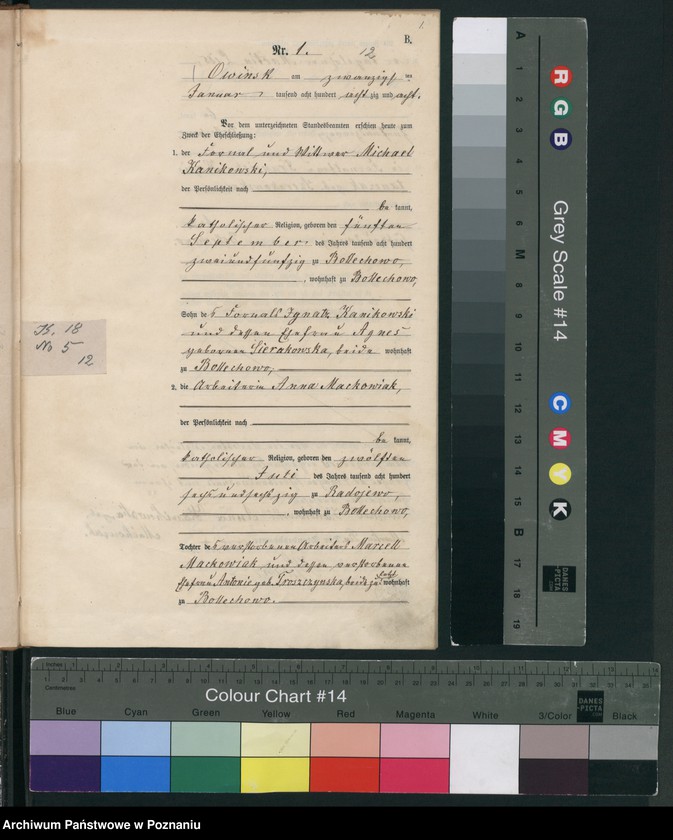 1.
B.
Nr. 1.
12
Owinsk am zwanzigsten
Januar tausend acht hundert achtzig und acht.
Vor dem unterzeichneten Standesbeamten erschien heute zum
Zweck der Eheschließung:
1. der Fornal und Wittwer Michael
Kanikowski,
der Persönlichkeit nach
be kannt,
katholischer Religion, geboren den fünften
September des Jahres tausend acht hundert
zweiundfünfzig zu Bollechowo,
, wohnhaft zu Bollechowo,
Sohn des Fornals Ignatz Kanikowski
und dessen Ehefrau Agnes
geborenen Sierakowska, beide wohnhaft
zu Bollechowo,
2. die Arbeiterin Anna Mackowiak,
der Persönlichkeit nach
be kannt,
katholischer Religion, geboren den zwölften
Juli des Jahres tausend acht hundert
sechsundsechzig zu Radojewo,
, wohnhaft zu Bollechowo,
Tochter des verstorbenen Arbeiters Marcell
Mackowiak und dessen verstorbenen
Ehefrau Antonie geb. Troszczynska, beide zuletzt wohnhaft
zu Bollechowo.
K. 18
No 5
12
A 1 2 3 4 5 6 M 8 9 10 11 12 13 14 15 B 17 18 19
R G B
Grey Scale #14
C M Y K
DANES
-PICTA
.COM
Inches 1 2 3 4 5 6 7 8 9 10 11 12 13 14
Centimetres 1 2 3 4 5 6 7 8 9 10 11 12 13 14 15 16 17 18 19 20 21 22 23 24 25 26 27 28 29 30 31 32 33 34 35
Colour Chart #14
DANES
-PICTA
.COM
Blue Cyan Green Yellow Red Magenta White 3/Color Black
Archiwum Państwowe w Poznaniu